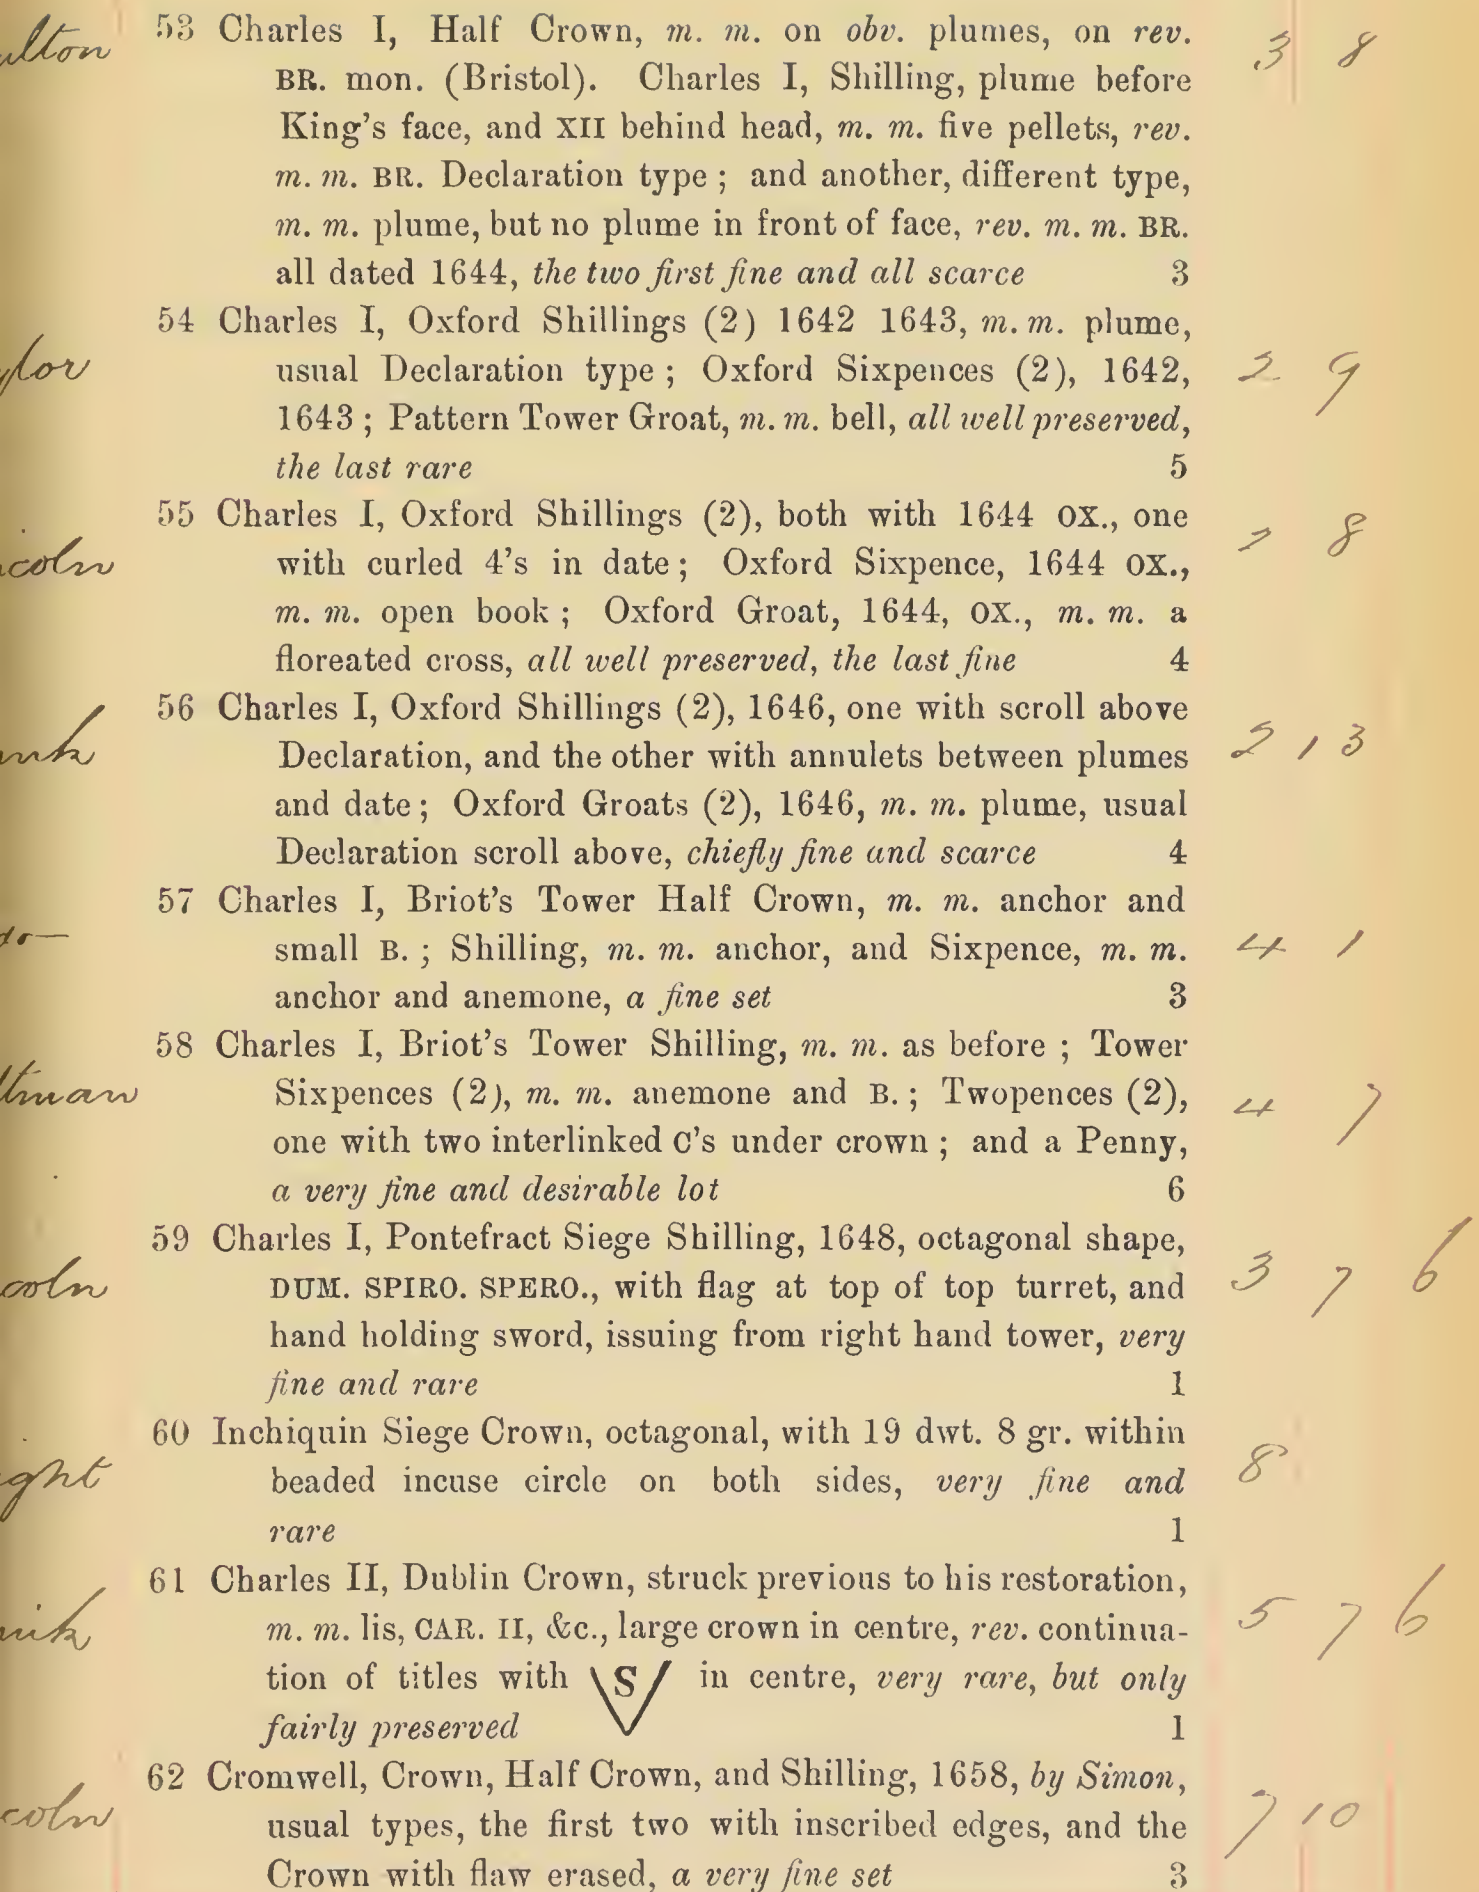 53 Charles I, Half Crown, m. m. on obv. plumes, on rev. 3 8
BR. mon. (Bristol). Charles I, Shilling, plume before
King's face, and XII behind head, m. m. five pellets, rev.
m. m. BR. Declaration type ; and another, different type,
m. m. plume, but no plume in front of face, rev. m. m. BR.
all dated 1644, the two first fine and all scarce 3
54 Charles I, Oxford Shillings (2) 1642 1643, m. m. plume,
usual Declaration type ; Oxford Sixpences (2), 1642, 2 9
1643 ; Pattern Tower Groat, m. m. bell, all well preserved,
the last rare 5
55 Charles I, Oxford Shillings (2), both with 1644 OX., one 2 8
with curled 4's in date ; Oxford Sixpence, 1644 OX.,
m. m. open book ; Oxford Groat, 1644, OX., m. m. a
floreated cross, all well preserved, the last fine 4
56 Charles I, Oxford Shillings (2), 1646, one with scroll above
Declaration, and the other with annulets between plumes 2 13
and date ; Oxford Groats (2), 1646, m. m. plume, usual
Declaration scroll above, chiefly fine and scarce 4
57 Charles I, Briot's Tower Half Crown, m. m. anchor and
do— small B. ; Shilling, m. m. anchor, and Sixpence, m. m. 4 1
anchor and anemone, a fine set 3
58 Charles I, Briot's Tower Shilling, m. m. as before ; Tower
Sixpences (2), m. m. anemone and B. ; Twopences (2), 4 7
one with two interlinked C's under crown ; and a Penny,
a very fine and desirable lot 6
59 Charles I, Pontefract Siege Shilling, 1648, octagonal shape,
DUM. SPIRO. SPERO., with flag at top of top turret, and 3 7 6
hand holding sword, issuing from right hand tower, very
fine and rare 1
60 Inchiquin Siege Crown, octagonal, with 19 dwt. 8 gr. within
beaded incuse circle on both sides, very fine and 8
rare 1
61 Charles II, Dublin Crown, struck previous to his restoration,
m. m. lis, CAR. II, &c., large crown in centre, rev. continua- 5 7 6
tion of titles with V S in centre, very rare, but only
fairly preserved 1
62 Cromwell, Crown, Half Crown, and Shilling, 1658, by Simon,
usual types, the first two with inscribed edges, and the 7 10
Crown with flaw erased, a very fine set 3